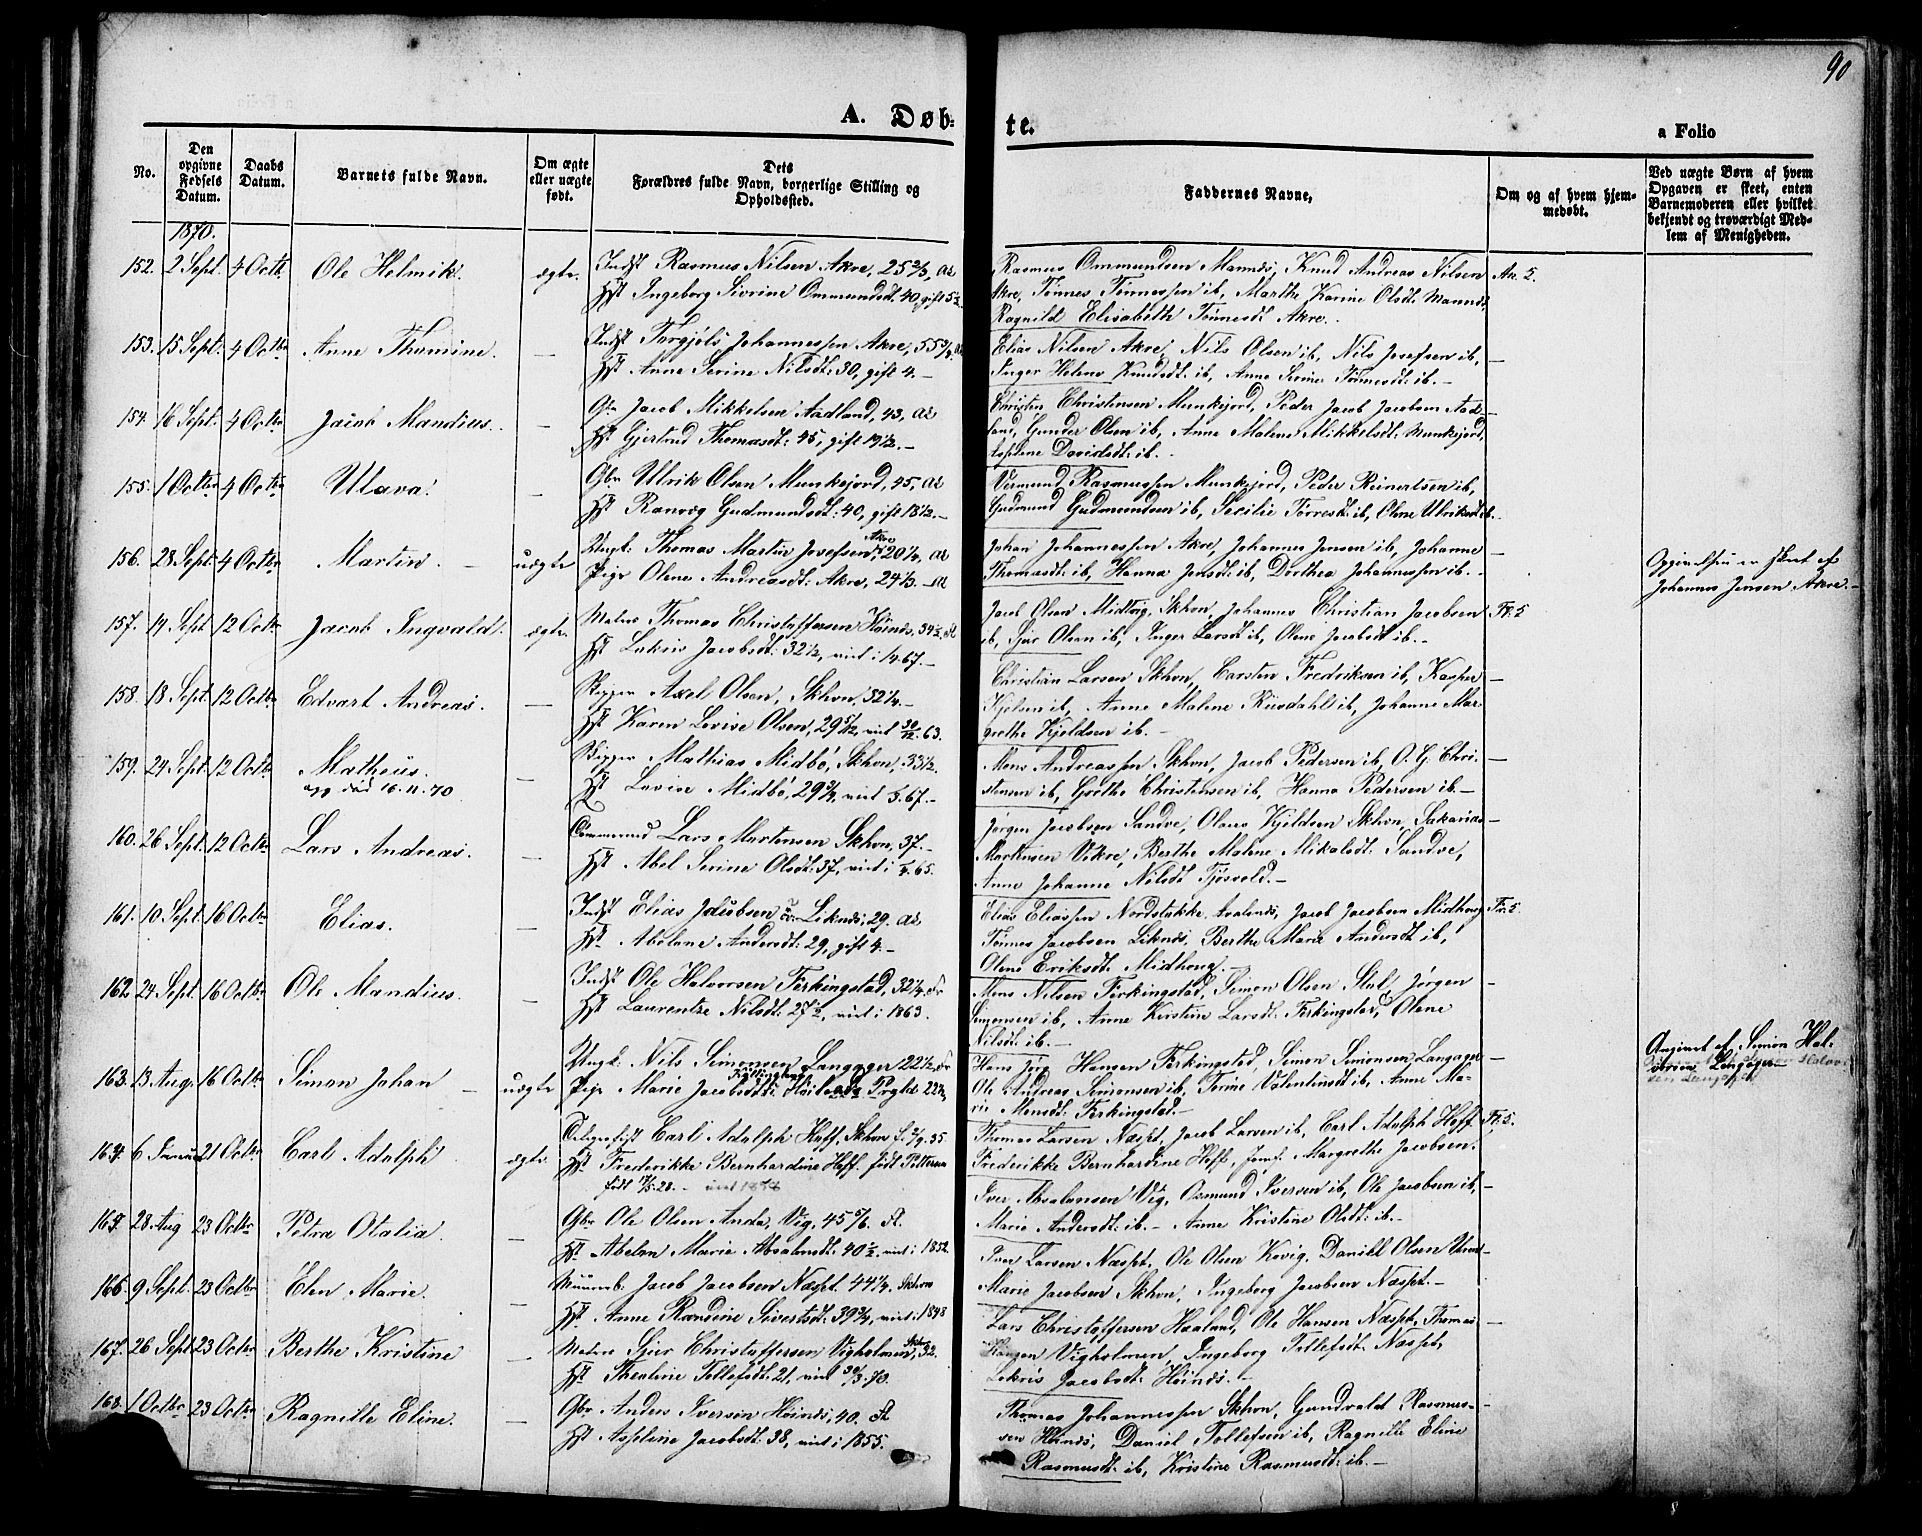 90
A. Døb-
te.
a Folio
No.
Den opgivne Fødsels Datum.
Daabs Datum.
Barnets fulde Navn.
Om ægte eller uægte født.
Dets Forældres fulde Navn, borgerlige Stilling og Opholdssted.
Faddernes Navne,
Om og af hvem hjemmedøbt.
Ved uægte Børn af hvem Opgaven er skeet, enten Barnemoderen eller hvilket bekjendt og troværdigt Medlem af Menigheden.
1870.
152. 2 Sept. 4 Octb. Ole Helmik. ægte. Indst Rasmus Nilsen Akre, 25 2/3,
Hst Ingeborg Sivrine Ommundsdt: 40, gift 5 1/2
Rasmus Ommundsen Mannes, Knud Andreas Nilsen
Akre, Tønnes Tønnessen ib, Marthe Karine Olsdt. Mannes,
Ragnild Elisabeth Tønnesdt Akre.
153. 15 Sept. 4 Octbr Anne Thomine. — Indst Torgjøls Johannessen Akre, 55 3/4,
Hst Anne Serine Nilsdt: 30, gift 4. —
Elias Nilsen Akre, Nils Olsen ib, Nils Josefsen ib, —
Inger Helene Knudsdt. ib, Anne Serine Tønnesdt. ib. —
154. 16 Sept. 4 Octbr Jacob Mandius. — Gbr Jacob Mikkelsen Aadland, 43,
Hst Gjertrud Thomasdt: 45, gift 19 1/2. —
Christen Christensen Munkejord, Peder Jacob Jacobsen Aad-
land, Gunder Olsen ib, Anne Malene Mikkelsdt: Munkejord,
Davidsdt: ib.
155. 1 Octbr 4 Octbr Ulava. — Gbr Ulrik Olsen Munkejord, 45,
Hst Ranveg Gudmundsdt: 40, gift 18 1/2. —
Vermund Rasmussen Munkejord, Peder Reinertsen ib,
Gudmund Gudmundsen ib, Secilie Torresdt: ib, Olene Ulriksdt ib.
156. 28 Sept. 4 Octbr Martin. — uægte Ungk: Thomas Martin Josefsen Akre, 20 1/4,
Pige Olene Andreasdt: Akre, 24 1/3. —
Johan Johannessen Akre, Johannes Jensen ib, Johanne —
Thomasdt: ib, Hanna Jensdt: ib, Dorthea Johannessen ib.
Opgivelsen er skeet af
Johannes Jensen Akre. —
157. 14 Sept 12 Octbr Jacob Ingvald. ægte. Matros Thomas Christoffersen Høines, 34 1/2,
Hst Lukris Jacobsdt: 32 1/2, viet i 67. —
Jacob Olsen Midtvig, Skhvn, Johannes Christian Jacobsen Fr. 5
ib, Sjur Olsen ib, Inger Larsdt ib, Olene Jacobsdt ib. —
158. 18 Sept. 12 Octbr Edvart Andreas. — Skipper Axel Olsen, Skhvn, 32 1/4. —
Hst Karen Lovise Olsen, 29 5/12, viet 30/12 63.
Christian Larsen Skhvn, Carsten Fredriksen ib, Kasper —
Kjølsen ib, Anne Malene Riisdahl ib, Johanne Mar-
grethe Kjeldsen ib. —
159. 24 Sept. 12 Octbr Matheus. — Skipper Mathias Midbø, Skhvn, 33 1/2.
opg. død 16.11.70 Hst Lovise Midbø, 29 3/4, viet 67. —
Mons Andreassen Skhvn, Jacob Pedersen ib, O. G. Chri- —
stensen ib, Grethe Christensen ib, Hanna Pedersen ib. —
160. 26 Sept. 12 Octbr Lars Andreas. — Lars Mortensen Skhvn, 37. —
Hst Abel Serine Olsdt: 37, viet i 65.
Jørgen Jacobsen Sandve, Olaus Kjeldsen Skhvn, Sakarias —
Markusen Vikre, Berthe Malene Mikalsdt: Sandve,
Anne Johanne Nilsdt Tjøsvold. —
161. 10 Sept. 16 Octbr Elias. — Indst Elias Jacobsen Liknes, 29.
Hst. Abelone Andersdt: 29, gift 4. —
Elias Eliassen Nordstokke, Avalsnes, Jacob Jacobsen Midhoug Fr. 5.
Tønnes Jacobsen Liknes, Berthe Marie Andersdt ib,
Olene Eriksdt. Midhoug. —
162 24 Sept. 16 Octbr Ole Mandius. — Indst Ole Halvorsen Ferkingstad, 32 1/4,
Hst Laurentze Nilsdt: 27 1/2, viet i 1863.
Mons Nilsen Ferkingstad, Simon Olsen Stol, Jørgen —
Simonsen ib, Anne Kirstine Larsdt. Ferkingstad, Olene
Nilsdt: ib. —
163. 13 Aug. 16 Octbr Simon Johan — uægte Ungk. Nils Simonsen Langager 22 1/2,
Pige Marie Jacobsdt: 22 1/2,
Hans Jørg. Hansen Ferkingstad, Simon Simonsen Langager —
Ole Andreas Simonsen ib, Torine Valentinsdt ib, Anne Ma-
rie Monsdt: Ferkingstad. —
Angivet af Simon Hal-
vorsen Langager —
164. 6 21 Octbr Carl Adolph. ægte. Telegrafist Carl Adolph Hoff, Skhvn f. 2/9. 35
Hst: Frederikke Bernhardine Hoff. født Petterson
født 17/5. 28. —
Thomas Larsen Næsset, Jacob Larsen ib, Carl Adolph Hoff Fr. 5.
Frederikke Bernhardine Hoff, Jomf. Margrethe Jacobsen.
165. 28. Aug 23 Octbr Petra Otalia. — Gbr Ole Olsen Anda, Vig, 45 5/6.
Hst Abelon Marie Absalonsdt: 40 1/2. viet i 1852.
Iver Absalonsen Vig, Osmund Iversen ib, Ole Jacobsen ib, —
Marie Andersdt: ib. — Anne Kristine Olsdt: ib. —
166. 9 Sept. 23 Octbr Elen Marie. — Muurmb. Jacob Jacobsen Næsset. 44 1/4. Skhvn
Hst. Anne Randine Sivertsdt. 39 3/4, viet i 1848
Iver Larsen Næsset, Ole Olsen Kovig, Daniel Olsen
Marie Jacobsen Skhvn, Ingeborg Jacobsen Næsset. —
167. 26 Sept 23 Octbr Berthe Kristine — Matros Sjur Christoffersen Vigholmen, Skhvn, 32.
Hst. Thealine Tollefsdt: 21, viet 30/3. 70.
Lars Christoffersen Haaland, Ole Hansen Næsset, Thomas —
Vigholmen, Ingeborg Tollefsdt. Næsset,
Lukris Jacobsdt. Høines. —
168. 1 Octbr 23 Octbr Ragnille Eline. — Gbr. Anders Iversen Høines, 40.
Hst. Asseline Jacobsdt: 38, viet i 1855. —
Thomas Johannessen Skhvn, Gundvald Rasmus- —
sen Høines, Daniel Tollefsen ib, Ragnille Eline
Rasmusdt. ib, Kristine Rasmusdt: ib. —
8